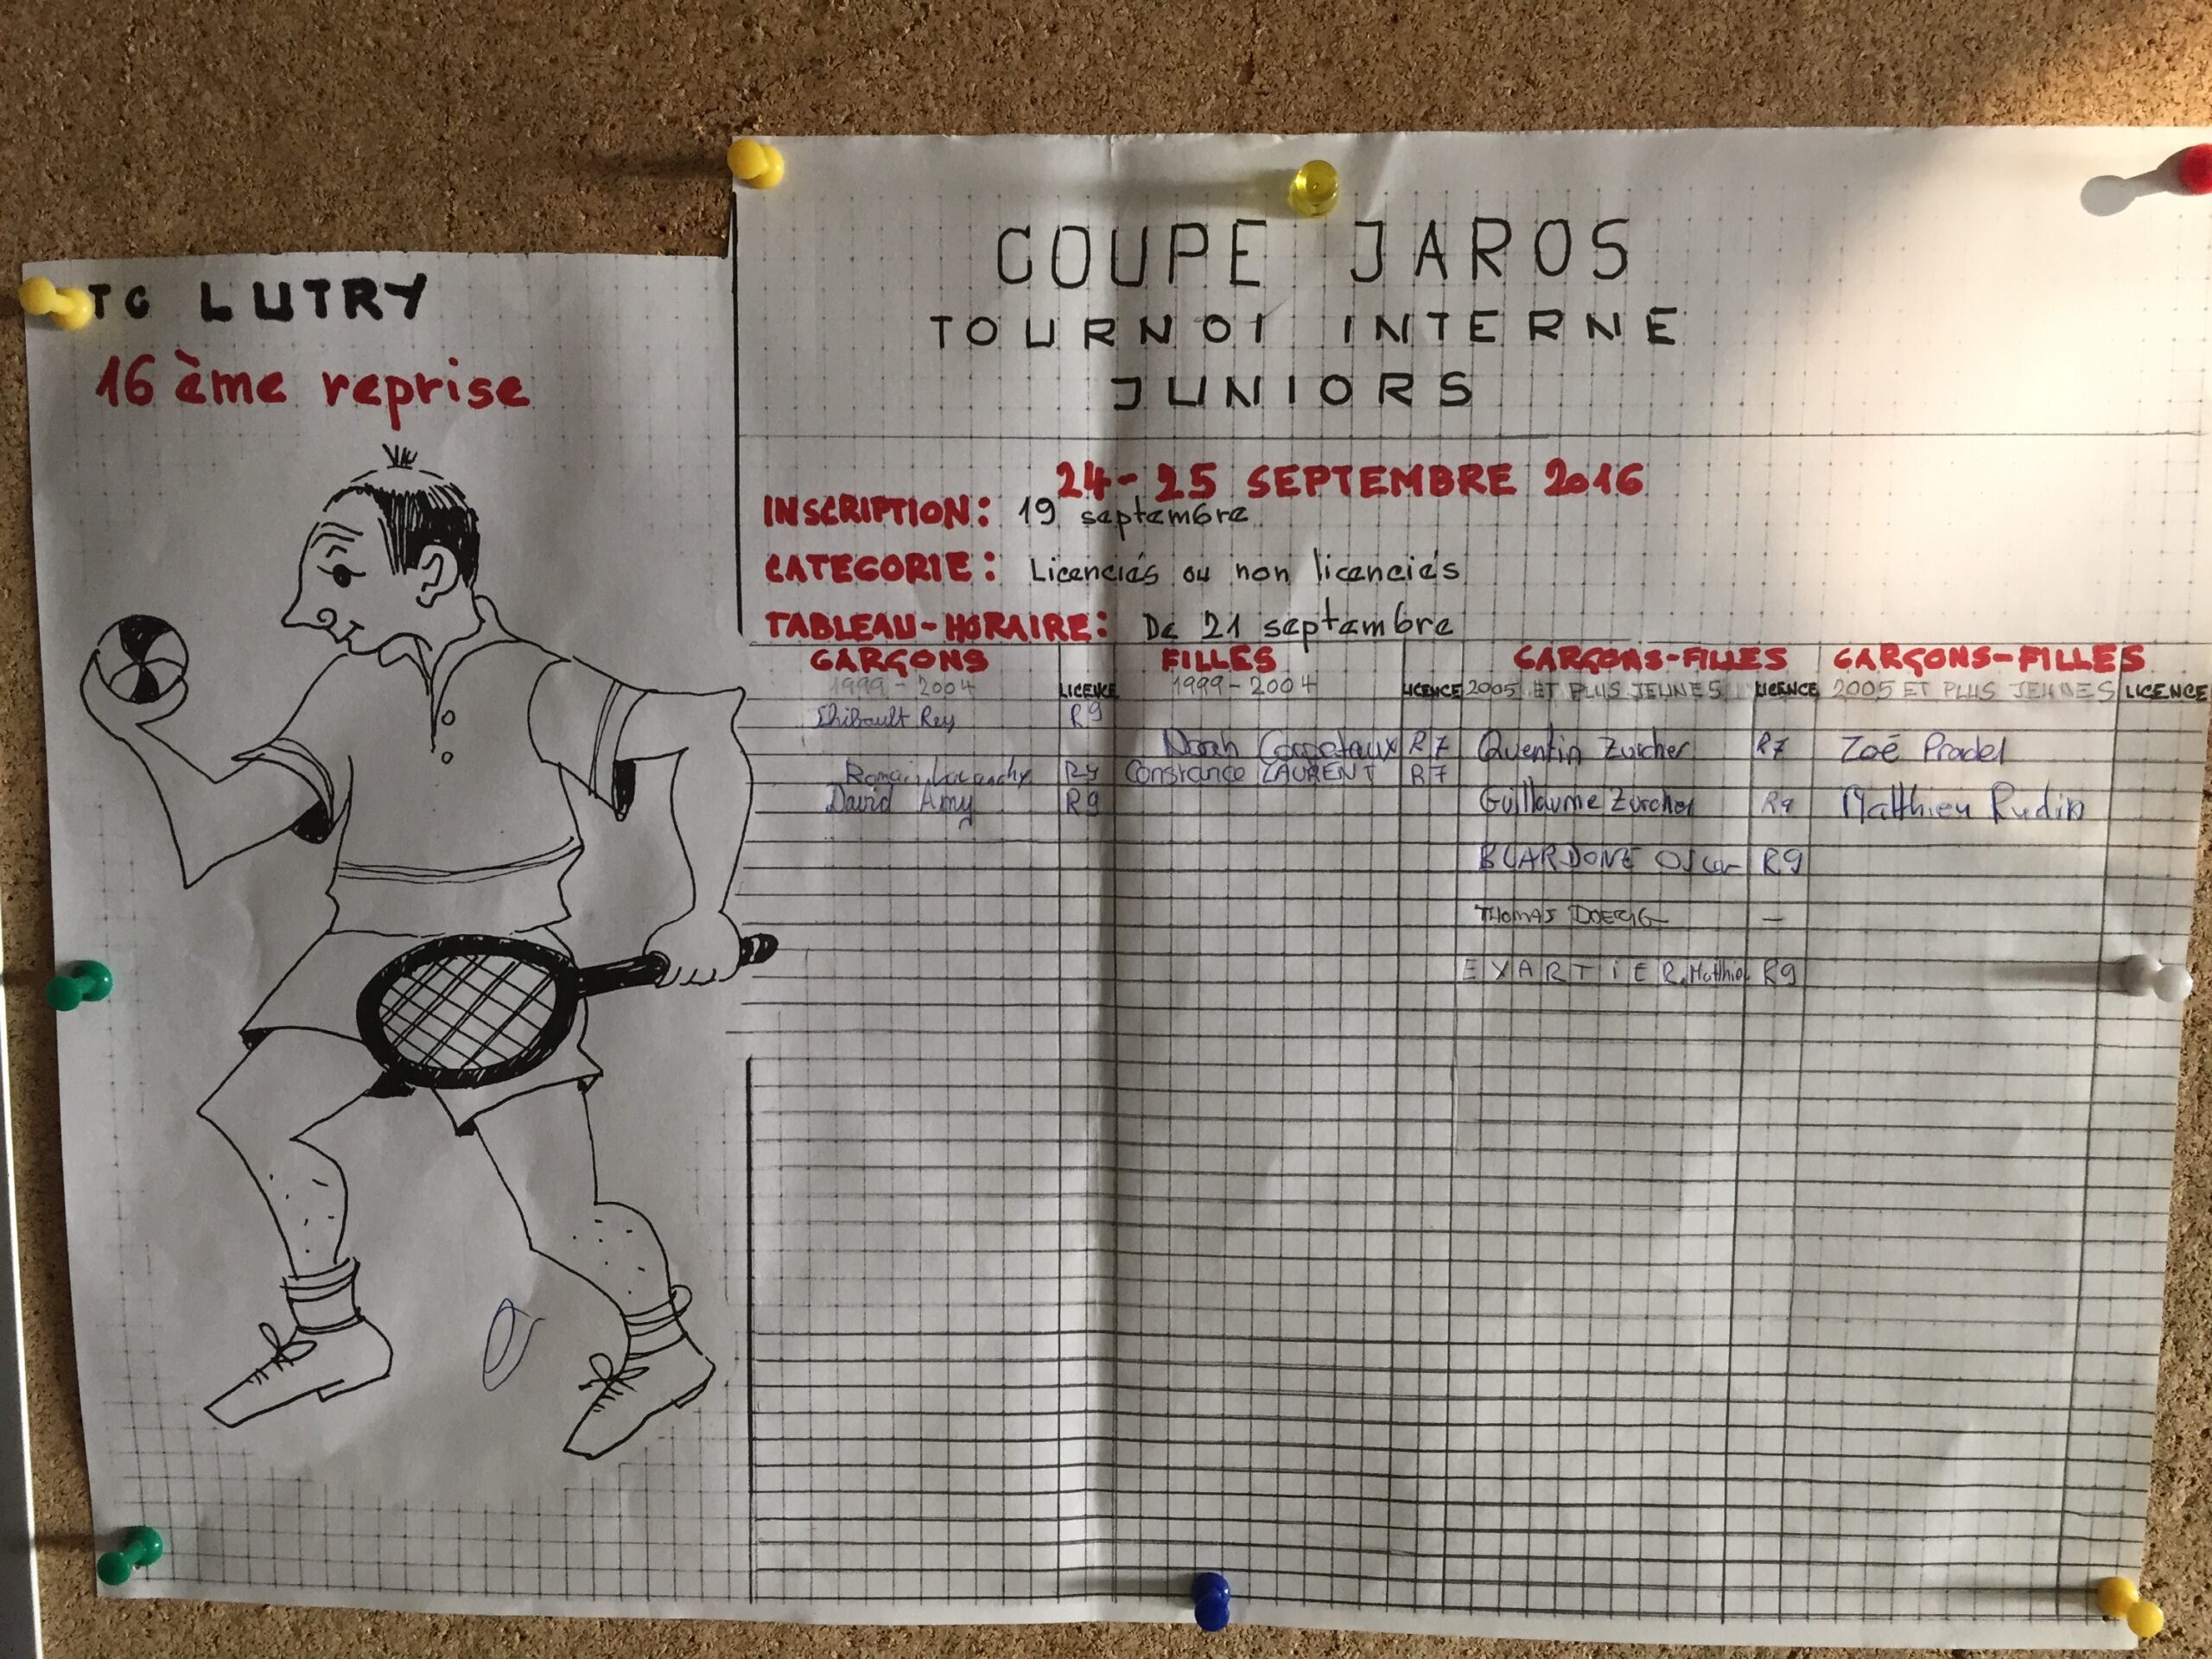 TC LUTRY
16 ème reprise
COUPE JAROS
TOURNOI INTERNE
JUNIORS
24-25 SEPTEMBRE 2016
INSCRIPTION: 19 septembre
CATEGORIE: Licenciés ou non licenciés
TABLEAU-HORAIRE: De 21 septembre
GARÇONS FILLES GARÇONS-FILLES GARÇONS-FILLES
1999-2004 LICENCE 1999-2004 LICENCE 2005 ET PLUS JEUNES LICENCE 2005 ET PLUS JEUNES LICENCE
Thibault Rey R9
Norah R7 Quentin Zurcher R7 Zoé Pradel
Romain Constance LAURENT R7
David Amy R9 Guillaume Zurcher Matthieu Rudin
BLARDONE Oscar R9
THOMAS DOERIG —
EXARTIER Matthieu R9